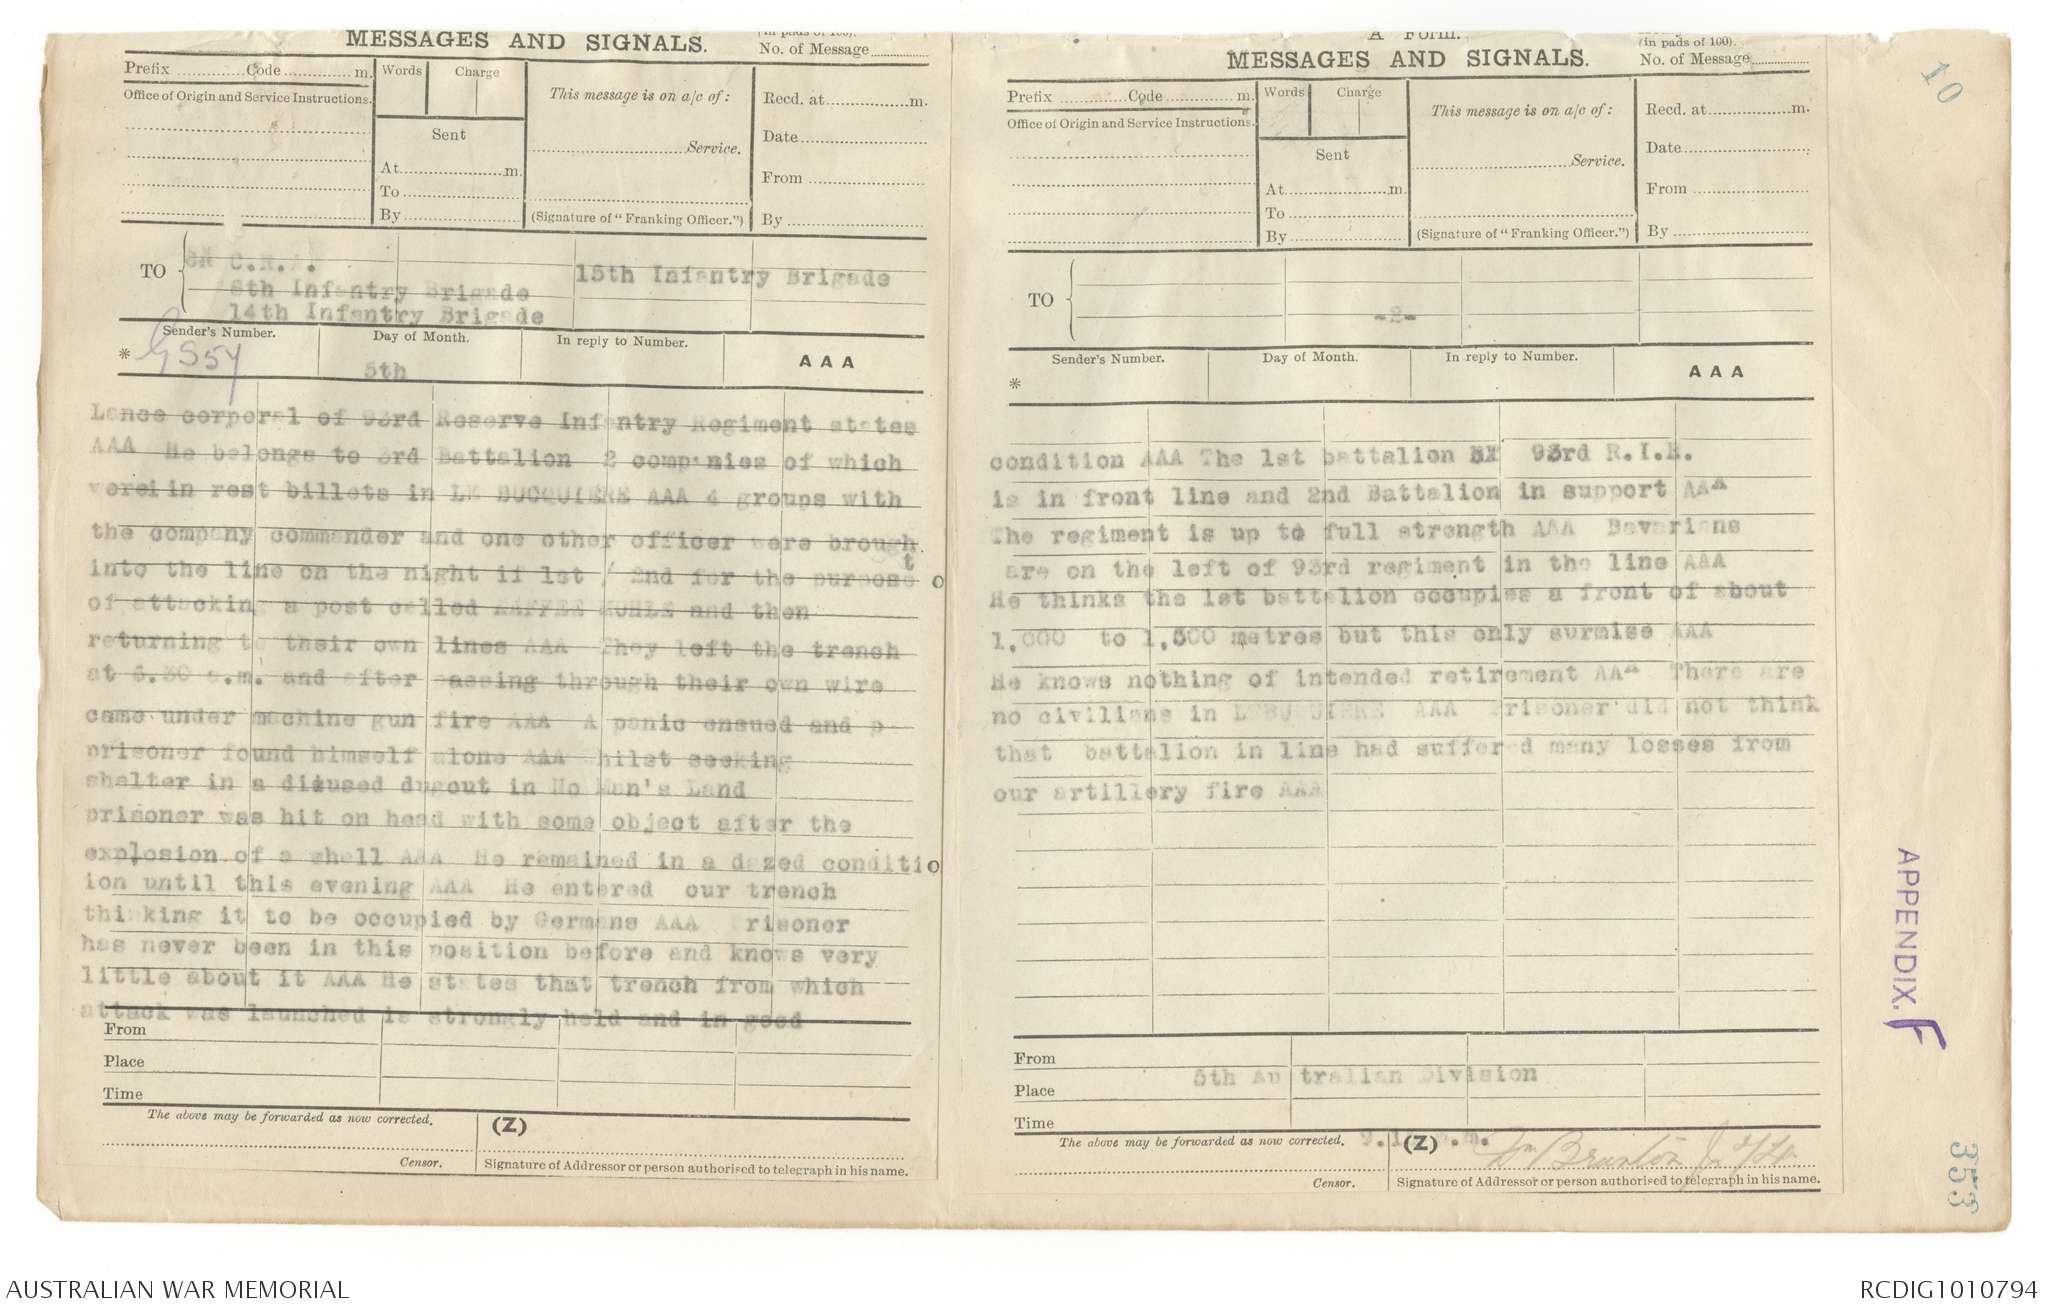 MESSAGES AND SIGNALS.
(in pads of 100).
No. of Message
Prefix Code m.
Words Charge
Office of Origin and Service Instructions.
Sent
At m.
To
By
This message is on a/c of:
Service.
(Signature of "Franking Officer.")
Recd. at m.
Date
From
By
TO
C.R.A.
8th Infantry Brigade
14th Infantry Brigade
15th Infantry Brigade
Sender's Number.
Day of Month.
In reply to Number.
AAA
* GS57
5th
Lance corporal of 93rd Reserve Infantry Regiment states
AAA He belongs to 3rd Battalion 2 companies of which
were in rest billets in LE BUCQUIERE AAA 4 groups with
the company commander and one other officer were brough
t
into the line on the night if 1st / 2nd for the purpose o
of attacking a post called KAFFEE HOHLE and then
returning to their own lines AAA They left the trench
at 6.30 a.m. and after passing through their own wire
came under machine gun fire AAA A panic ensued and p
prisoner found himself alone AAA Whilst seeking
shelter in a disused dugout in No Man's Land
prisoner was hit on head with some object after the
explosion of a shell AAA He remained in a dazed conditio
ion until this evening AAA He entered our trench
thinking it to be occupied by Germans AAA Prisoner
has never been in this position before and knows very
little about it AAA He states that trench from which
attack was launched is strongly held and in good
From
Place
Time
The above may be forwarded as now corrected.
(Z)
Censor.
Signature of Addressor or person authorised to telegraph in his name.
"A" Form.
MESSAGES AND SIGNALS.
(in pads of 100).
No. of Message
Prefix Code m.
Words Charge
Office of Origin and Service Instructions.
Sent
At m.
To
By
This message is on a/c of:
Service.
(Signature of "Franking Officer.")
Recd. at m.
Date
From
By
TO
-2-
Sender's Number.
Day of Month.
In reply to Number.
AAA
*
condition AAA The 1st battalion 93rd R.I.R.
is in front line and 2nd Battalion in support AAA
The regiment is up to full strength AAA Bavarians
are on the left of 93rd regiment in the line AAA
He thinks the 1st battalion occupies a front of about
1,000 to 1,500 metres but this only surmise AAA
He knows nothing of intended retirement AAA There are
no civilians in LEBUCQUIERE AAA Prisoner did not think
that battalion in line had suffered many losses from
our artillery fire AAA
From
Place
5th Australian Division
Time
The above may be forwarded as now corrected.
(Z)
Censor.
Signature of Addressor or person authorised to telegraph in his name.
10
APPENDIX. F
353
AUSTRALIAN WAR MEMORIAL
RCDIG1010794